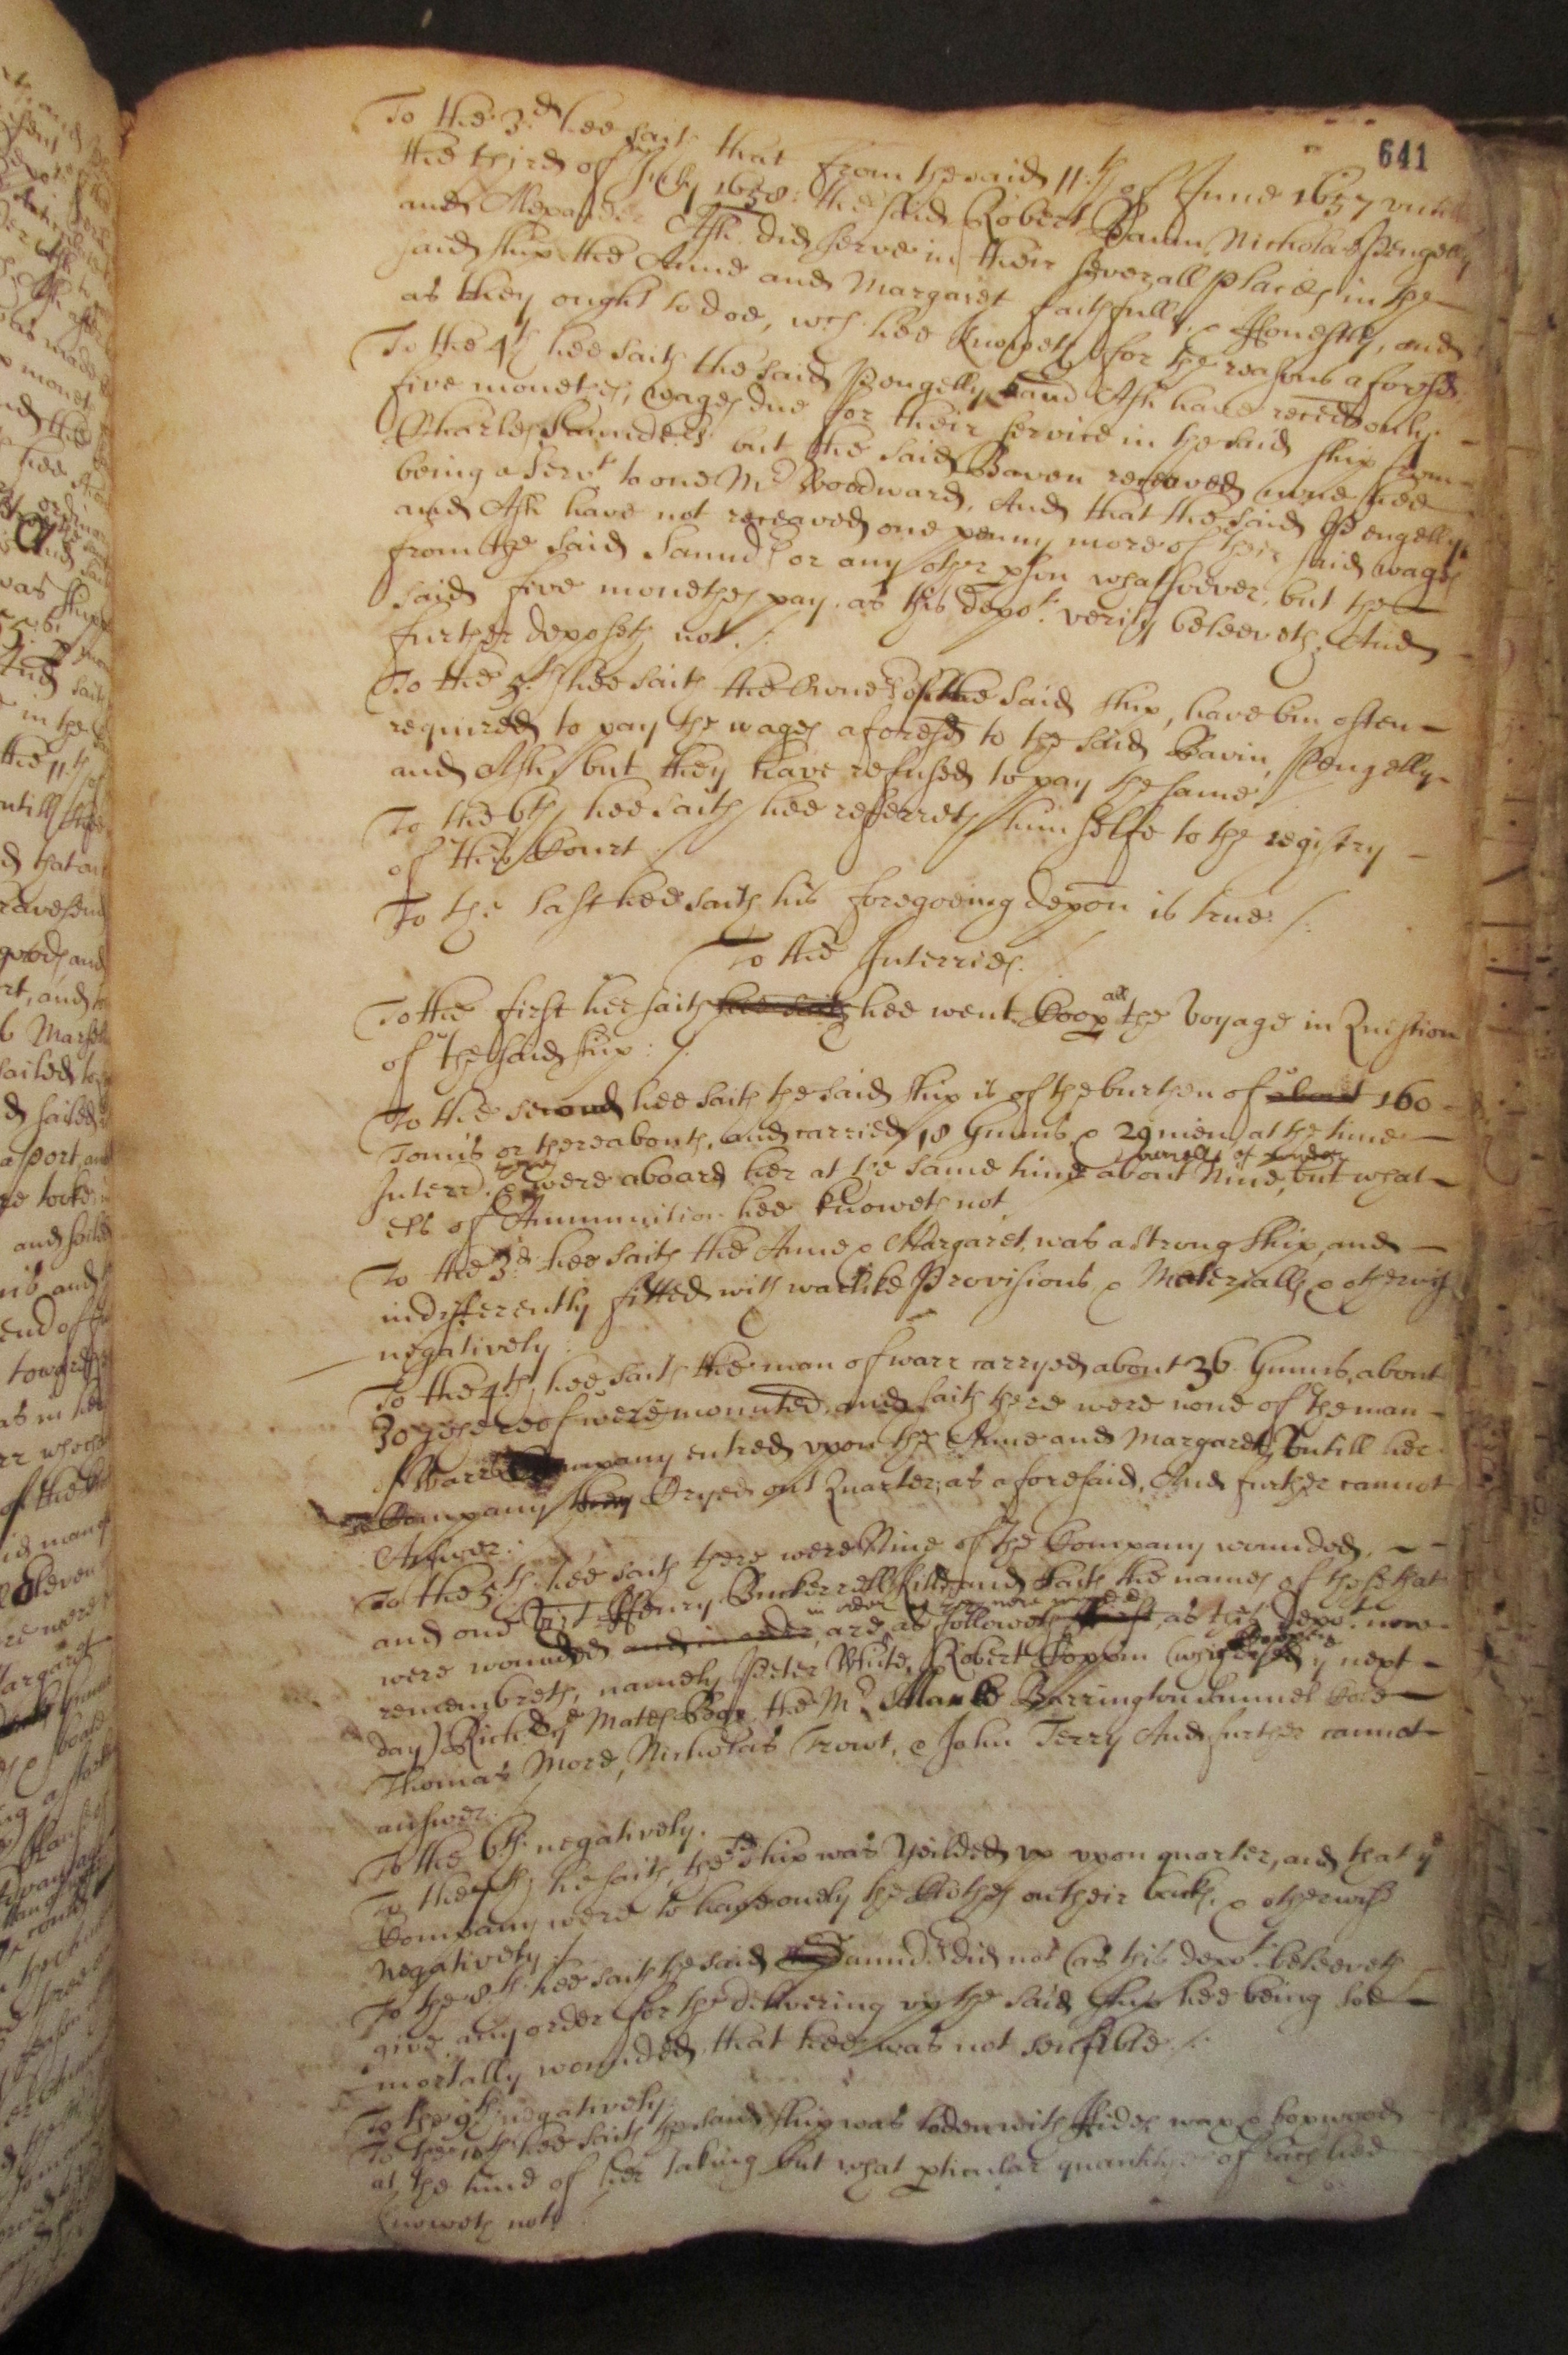 641
To the 3.d hee saith that from the said 11.th of June 1657 untill
the third of July 1658. the said Robert Bavin Nicholas Pengelly
and Alexander Ash did serve in their severall places in the
said ship the Anne and Margaret faithfully & honestly, and
as they ought to doe, wch hee knoweth for the reasons aforesd
To the 4th hee saith the said Pengelly and Ash have receed only
five moneths wages due for their service in the said ship from
Charles Saunders but the said Baven receaved none hee
being a servt to one Mr Woodward, And that the said Pengelly
and Ash have not receaved one penny more of their said wages
from the said Saundrs or any other pson whatsoever, but the
said five moneths pay. as this depot. verily beleeveth, And
further deposeth not./.
To the 5.th hee saith the Owners of the said ship, have bin often
required to pay the wages aforesd to the said Bavin, Pengelly
and Ash, but they have refused to pay the same/
To the 6th hee saith hee referreth him selfe to the registry
of this Court
To the last hee saith his foregoeing depon is true:/.
To the Interries.
To the first hee saith hee saith hee went Coop all the Voyage in Question
of the said ship:/.
To the second hee saith the said ship is of the burthen of about 160
Tonns or thereabouts, and carried 18 Gunns & 29 men at the time
Interr. & there were aboard her at the same time about Nine barrells of powder, but what
els of Ammunition hee knoweth not
To the 3.d hee saith the Anne & Margaret, was a strong ship, and
indifferently fitted with warlike Provisions & Materialls & otherwise
negatively:
To the 4th hee saith the man of warr carryed about 36 Gunns, about
30 whereof were mounted, and saith there were none of the man
of Warrs Company entred upon the Anne and Margaret, untill her
Company they Cryed out Quarter, as aforesaid, And further cannot
Answer:
To the 5.th hee saith there were Nine of the Company wounded,
and one Henry Buckerrell killed and saith the names of those that
were wounded and in order, in order as they were wounded are as followeth, as this depot. now
remembreth, namely Peter White, Robert Coppin (who dyed ye next
day) Rich: ye Mates Boy, the Mr, Marke Barrington Samuel Cole
Thomas More, Nicholas Trowt, & John Terry And further cannot
answer:
To the 6th negatively.
To the 7th he saith, the sd ship was Yeilded up upon quarter, and that ye
Company were to have onely the clothes on their backs. & otherwise
negatively:/
To the 8.th hee saith the said Saundrs did not (as this depot. beleeveth
give any order for the delivering up the said ship hee being soe
mortally wounded, that hee was not sensible/.
To the 9th negatively.
To the 10th hee saith the said ship was loden with Hides wax & boxwood
at the time of her taking but what pticular quantityes of each hee
knoweth not/